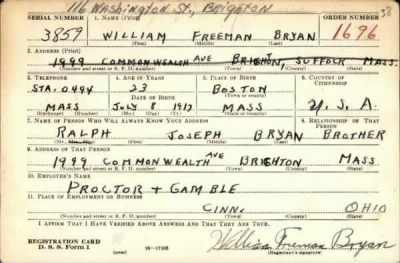 116 Washington St., Brighton
38
SERIAL NUMBER 1. NAME (Print) ORDER NUMBER
3859 WILLIAM FREEMAN BRYAN 1696
(First) (Middle) (Last)
2. ADDRESS (Print)
1999 COMMONWEALTH AVE BRIGHTON, SUFFOLK MASS.
(Number and street or R. F. D. number) (Town) (County) (State)
3. TELEPHONE 4. AGE IN YEARS 5. PLACE OF BIRTH 6. COUNTRY OF CITIZENSHIP
STA. 0494 23 BOSTON
DATE OF BIRTH (Town or county)
MASS JULY 8 1917 MASS U.S.A.
(Exchange) (Number) (Mo.) (Day) (Yr.) (State or country)
7. NAME OF PERSON WHO WILL ALWAYS KNOW YOUR ADDRESS 8. RELATIONSHIP OF THAT PERSON
RALPH JOSEPH BRYAN BROTHER
(First) (Middle) (Last)
9. ADDRESS OF THAT PERSON
1999 COMMONWEALTH AVE BRIGHTON MASS
(Number and street or R. F. D. number) (Town) (County) (State)
10. EMPLOYER'S NAME
PROCTOR + GAMBLE
11. PLACE OF EMPLOYMENT OR BUSINESS
CINN. OHIO
(Number and street or R. F. D. number) (Town) (County) (State)
I AFFIRM THAT I HAVE VERIFIED ABOVE ANSWERS AND THAT THEY ARE TRUE.
REGISTRATION CARD
D. S. S. Form 1 (over) 16—17105 William Freeman Bryan
(Registrant's signature)